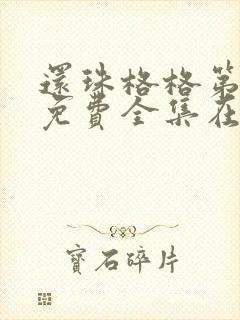 還珠格格第
免費全集在
寶石碎片